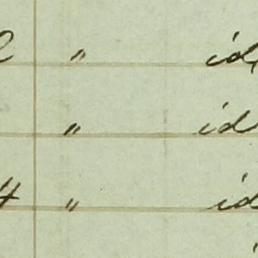 " id
" id
4 " id